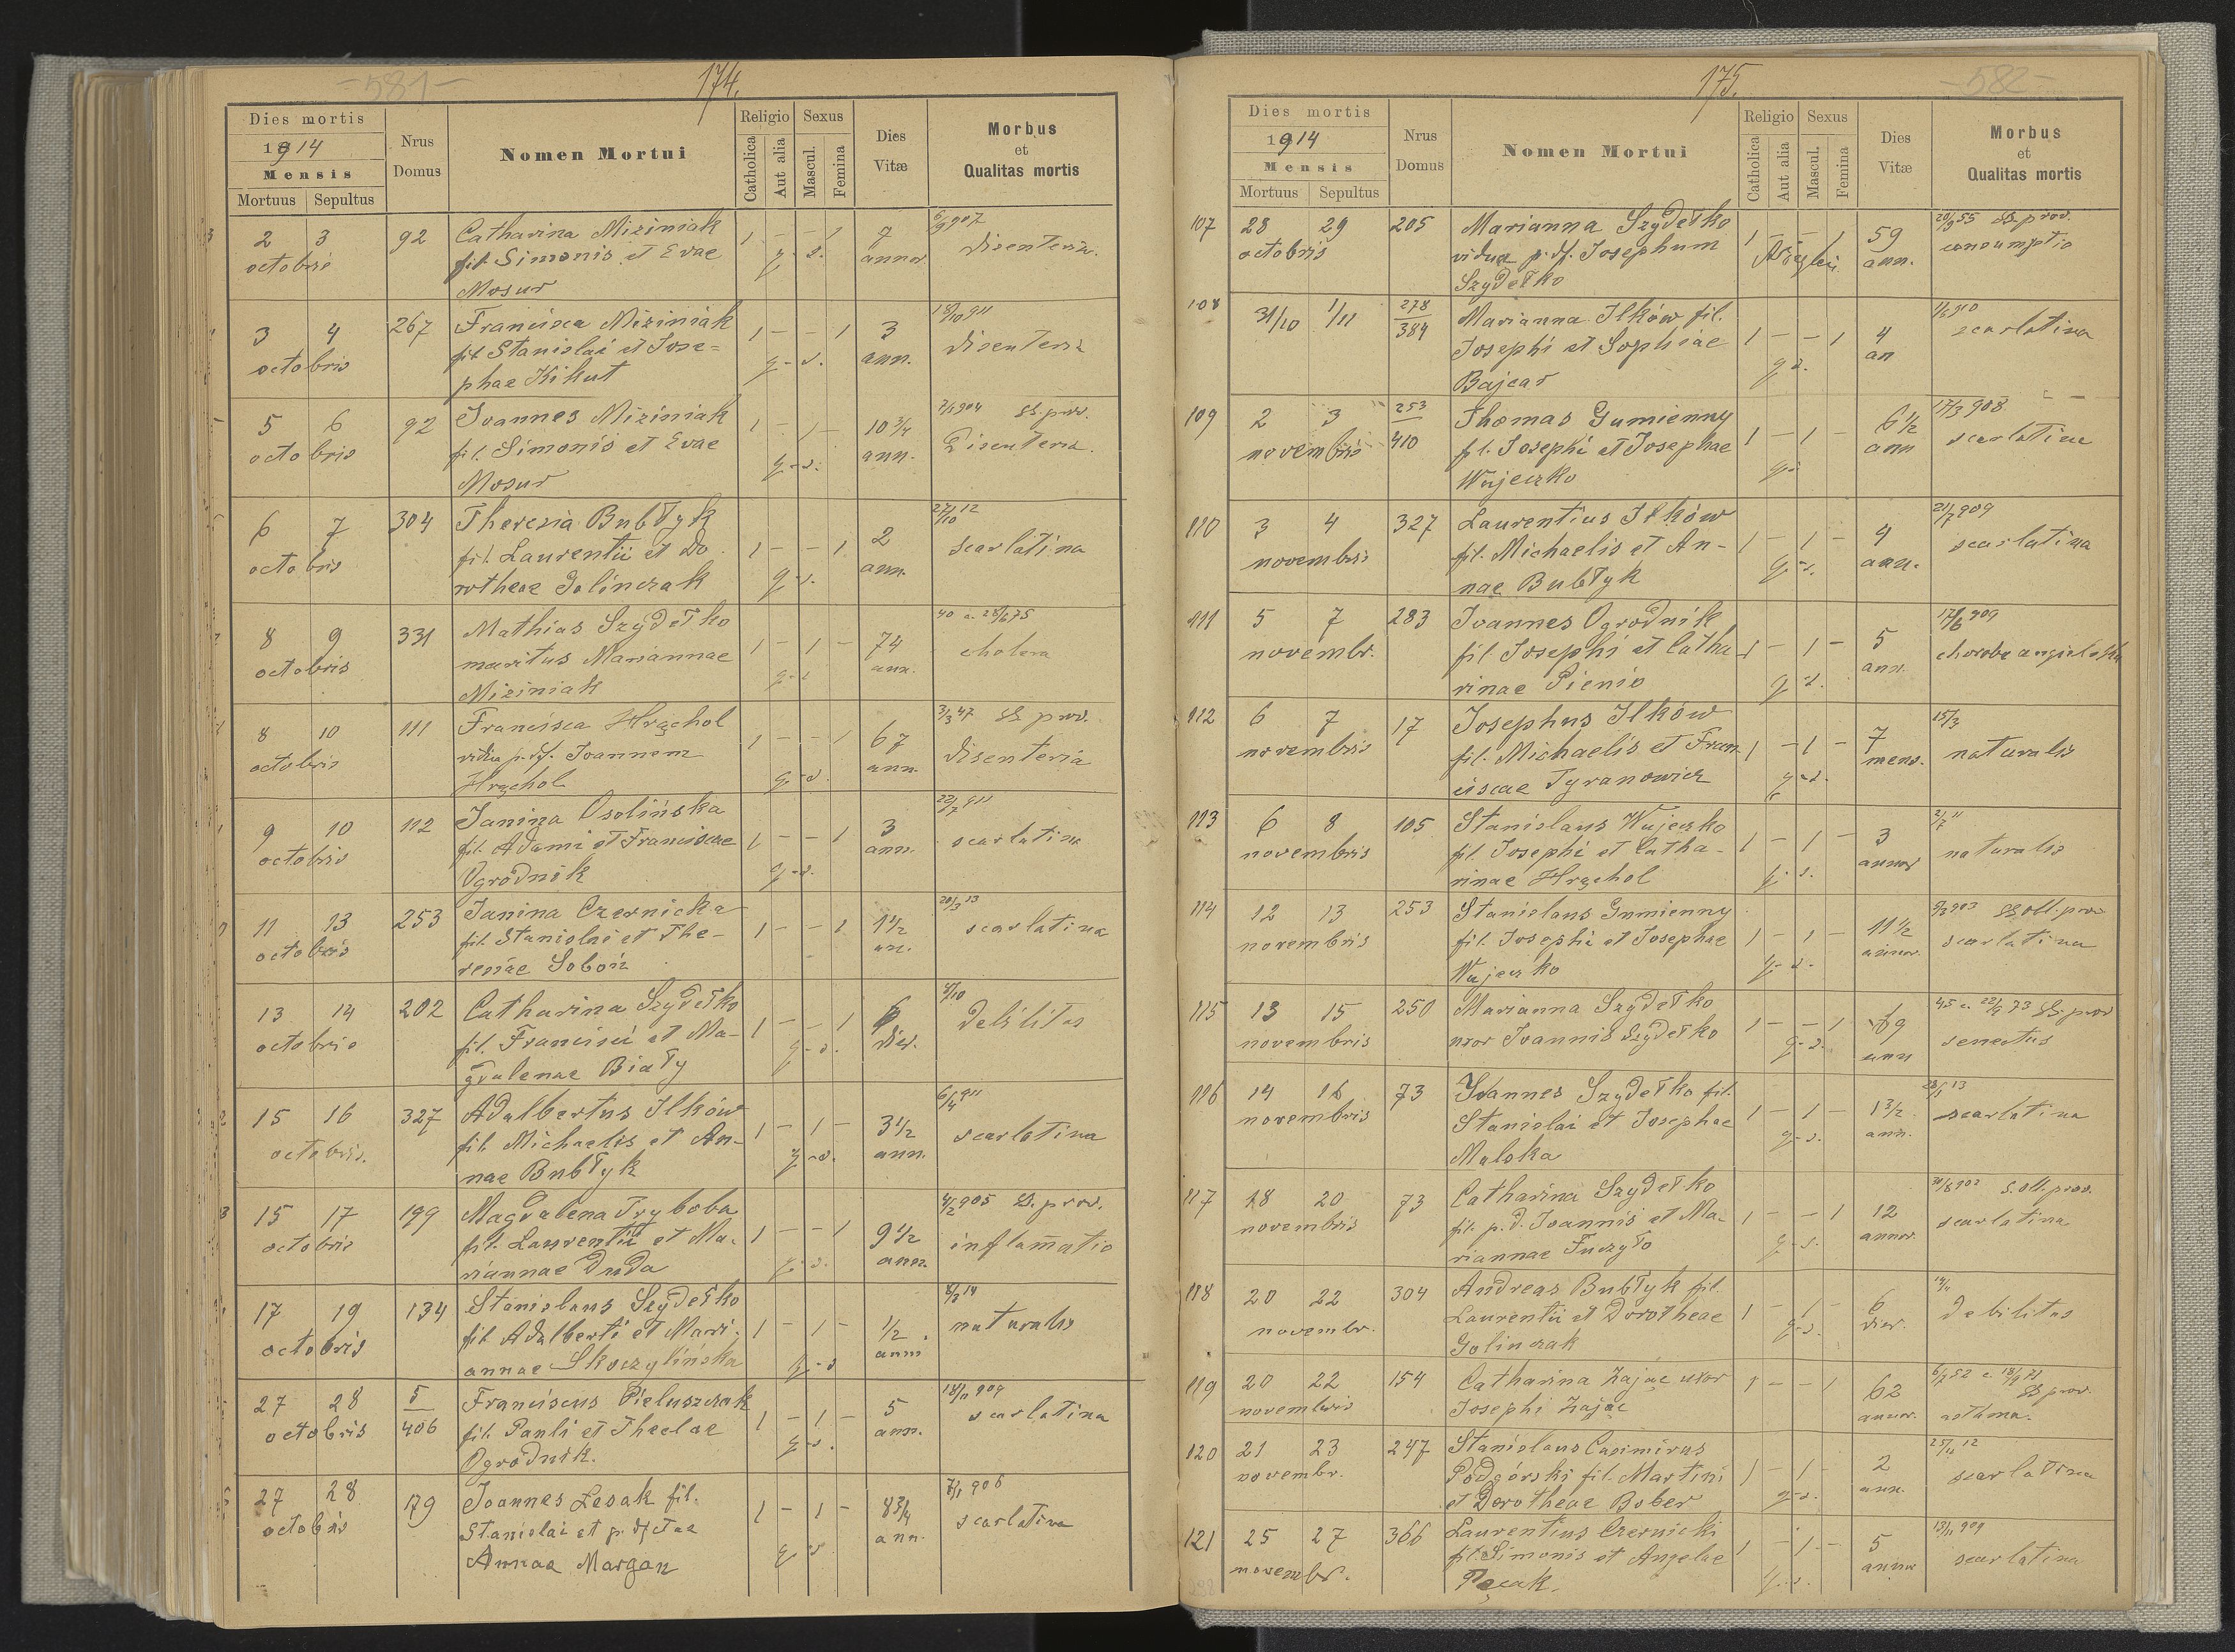 -581-
174.
Dies mortis
1914
Mensis
Mortuus Sepultus
Nrus Domus
Nomen Mortui
Religio
Catholica
Aut alia
Sexus
Mascul.
Femina
Dies Vitæ
Morbus et Qualitas mortis
2 3 92 Catharina Miziniak 1 - - 1 7 6/9 907
octobris fil. Simonis et Evae annor. disenteria.
Mosur
3 4 267 Francisca Miziniak 1 - - 1 3 18/10 911
octobris fil. Stanislai et Jose= ann. disenteria
phae Kikut
5 6 92 Joannes Miziniak 1 - 1 - 10 3/4 7/1 904 SS. prov.
octobris fil. Simonis et Evae ann. Disenteria.
Mosur
6 7 304 Theresia Bubłyk 27/10 12
octobris fil. Laurentii et Do 1 - - 1 2 scarlatina
rotheae Golinczak ann.
8 9 331 Mathias Szydełko 40 a. 28/6 75
octobris maritus Mariannae 1 - 1 - 74 cholera
Miziniak ann.
8 10 111 Francisca Hrąchol 3/3 47 SS. prov.
octobris vidua p. df. Joannem 1 - - 1 67 disenteria
Hrąchol ann.
9 10 112 Janina Osolińska 22/2 911
octobris fil. Adami et Franciscae 1 - - 1 3 scarlatina
Ogrodnik ann.
11 13 253 Janina Czernicka 20/3 13
octobris fil. Stanislai et The- 1 - - 1 1 1/2 scarlatina
resiae Soboń an.
13 14 202 Catharina Szydełko 8/10
octobris fil. Francisci et Ma- 1 - - 1 6 debilitas
gdalenae Biały dier.
15 16 327 Adalbertus Ilków 6/4 911
octobris. fil. Michaelis et An- 1 - 1 - 3 1/2 scarlatina
nae Bubłyk ann.
15 17 199 Magdalena Tryboba 4/2 905 S. prov.
octobris fil. Laurentii et Ma- 1 - - 1 9 1/2 inflamatio
riannae Duda ann.
17 19 134 Stanislaus Szydełko 14
octobris fil. Adalberti et Mari- 1 - 1 - 1/2 naturalis
annae Skoczylińska anni
27 28 5/406 Franciscus Pieluszczak 18/11 909
octobris fil. Pauli et Theclae 1 - 1 - 5 scarlatina
Ogrodnik. ann.
27 28 179 Joannes Lesak fil. 1 - 1 - 8 3/4 7/1 906
octobris Stanislai et p. df tae ann. scarlatina
Annae Margan
-582-
175.
Dies mortis
1914
Mensis
Mortuus Sepultus
Nrus Domus
Nomen Mortui
Religio
Catholica
Aut alia
Sexus
Mascul.
Femina
Dies Vitæ
Morbus et Qualitas mortis
107 28 29 205 Marianna Szydełko 1 - - 1 59 20/9 55 SS. prov.
octobris vidua p. df. Josephum ann. consumptio
Szydełko
108 31/10 1/11 278/384 Marianna Ilków fil. 910
Josephi et Sophiae 1 - - 1 4 scarlatina
Bajcar an
109 2 3 253/410 Thomas Gumienny 17/3 908
novembris fil. Josephi et Josephae 1 - 1 - 6 1/2 scarlatina
Wujeczko ann
110 3 4 327 Laurentius Ilków 21/7 909
novembris fil. Michaelis et An- 1 - 1 - 4 scarlatina
nae Bubłyk ann.
111 5 7 283 Joannes Ogrodnik 17/6 909
novembr. fil. Josephi et Catha- 1 - 1 - 5 choroba angielska
rinae Pienio ann.
112 6 7 17 Josephus Ilków 15/3
novembris fil. Michaelis et Fran 1 - 1 - 7 naturalis
ciscae Tyranowicz mens.
113 6 8 105 Stanislaus Wujeczko 2/7 11
novembris fil. Josephi et Catha- 1 - 1 - 3 naturalis
rinae Hrąchol annor
114 12 13 253 Stanislaus Gumienny 903 SS. obl. prov
novembris fil. Josephi et Josephae 1 - 1 - 11 1/2 scarlatina
Wujeczko annor.
115 13 15 250 Marianna Szydełko 1 - - 1 69 SS. prov
novembris uxor Joannis Szydełko ann senectus
116 14 16 73 Joannes Szydełko fil. 28/1 13
novembris Stanislai et Josephae 1 - 1 - 1 3/2 scarlatina
Malska ann.
117 18 20 73 Catharina Szydełko 30/8 902 S. oll. prov.
novembris fil. p. d. Joannis et Ma- 1 - - 1 12 scarlatina
riannae Fuczyło annor.
118 20 22 304 Andreas Bubłyk fil. 14/11
novembr. Laurentii et Dorotheae 1 - 1 - 6 debilitas
Golinczak dier.
119 20 22 154 Catharina Zając uxor 1 - - 1 62 SS prov.
novembris Josephi Zając annor. asthma.
120 21 23 247 Stanislaus Casimirus 25/11 12
novembr. Podgórski fil. Martini 1 - 1 - 2 scarlatina
et Dorotheae Bober ann.
121 25 27 366 Laurentius Czernicki 13/11 909
novembr. fil. Simonis et Angelae 1 - 1 - 5 scarlatina
Pęcak. annor